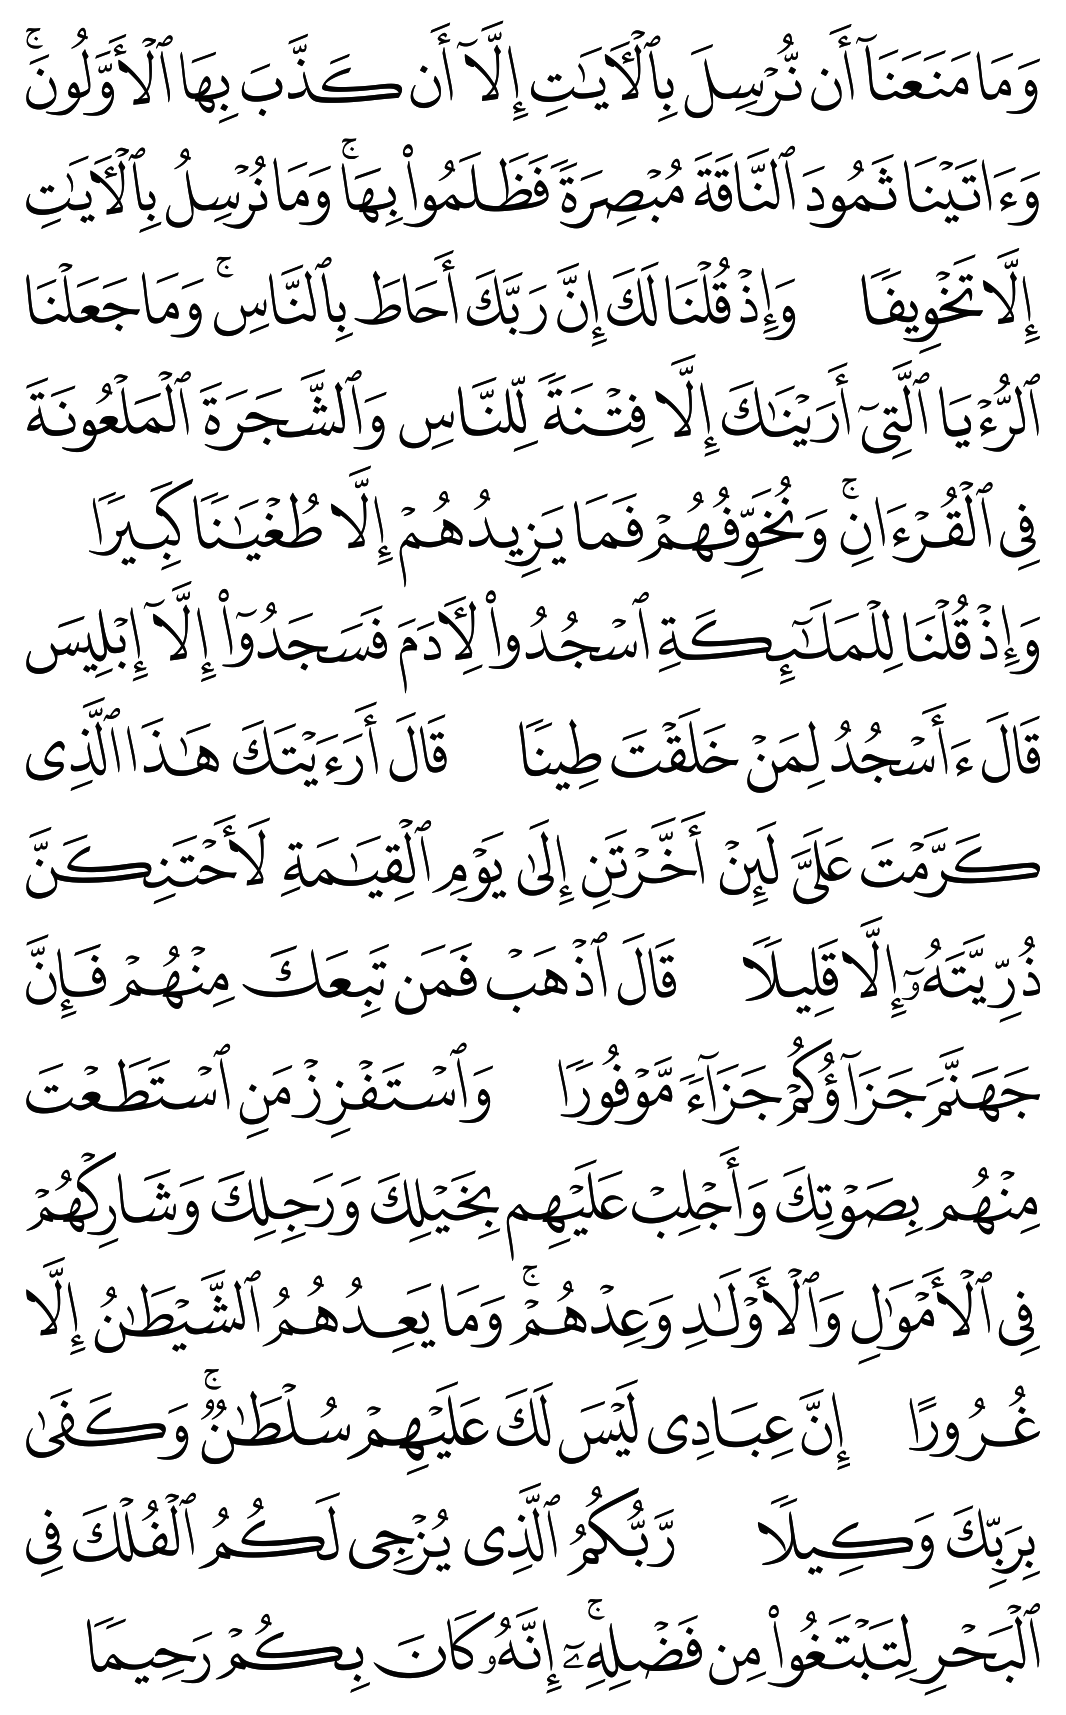 وَمَا مَنَعَنَآ أَن نُّرْسِلَ بِٱلْـَٔايَـٰتِ إِلَّآ أَن كَذَّبَ بِهَا ٱلْأَوَّلُونَ ۚ
وَءَاتَيْنَا ثَمُودَ ٱلنَّاقَةَ مُبْصِرَةً فَظَلَمُوا۟ بِهَا ۚ وَمَا نُرْسِلُ بِٱلْـَٔايَـٰتِ
إِلَّا تَخْوِيفًا وَإِذْ قُلْنَا لَكَ إِنَّ رَبَّكَ أَحَاطَ بِٱلنَّاسِ ۚ وَمَا جَعَلْنَا
ٱلرُّءْيَا ٱلَّتِىٓ أَرَيْنَـٰكَ إِلَّا فِتْنَةً لِّلنَّاسِ وَٱلشَّجَرَةَ ٱلْمَلْعُونَةَ
فِى ٱلْقُرْءَانِ ۚ وَنُخَوِّفُهُمْ فَمَا يَزِيدُهُمْ إِلَّا طُغْيَـٰنًا كَبِيرًا
وَإِذْ قُلْنَا لِلْمَلَـٰٓئِكَةِ ٱسْجُدُوا۟ لِـَٔادَمَ فَسَجَدُوٓا۟ إِلَّآ إِبْلِيسَ
قَالَ ءَأَسْجُدُ لِمَنْ خَلَقْتَ طِينًا قَالَ أَرَءَيْتَكَ هَـٰذَا ٱلَّذِى
كَرَّمْتَ عَلَىَّ لَئِنْ أَخَّرْتَنِ إِلَىٰ يَوْمِ ٱلْقِيَـٰمَةِ لَأَحْتَنِكَنَّ
ذُرِّيَّتَهُۥٓ إِلَّا قَلِيلًا قَالَ ٱذْهَبْ فَمَن تَبِعَكَ مِنْهُمْ فَإِنَّ
جَهَنَّمَ جَزَآؤُكُمْ جَزَآءً مَّوْفُورًا وَٱسْتَفْزِزْ مَنِ ٱسْتَطَعْتَ
مِنْهُم بِصَوْتِكَ وَأَجْلِبْ عَلَيْهِم بِخَيْلِكَ وَرَجِلِكَ وَشَارِكْهُمْ
فِى ٱلْأَمْوَٰلِ وَٱلْأَوْلَـٰدِ وَعِدْهُمْ ۚ وَمَا يَعِدُهُمُ ٱلشَّيْطَـٰنُ إِلَّا
غُرُورًا إِنَّ عِبَادِى لَيْسَ لَكَ عَلَيْهِمْ سُلْطَـٰنٌ ۚ وَكَفَىٰ
بِرَبِّكَ وَكِيلًا رَّبُّكُمُ ٱلَّذِى يُزْجِى لَكُمُ ٱلْفُلْكَ فِى
ٱلْبَحْرِ لِتَبْتَغُوا۟ مِن فَضْلِهِۦٓ ۚ إِنَّهُۥ كَانَ بِكُمْ رَحِيمًا